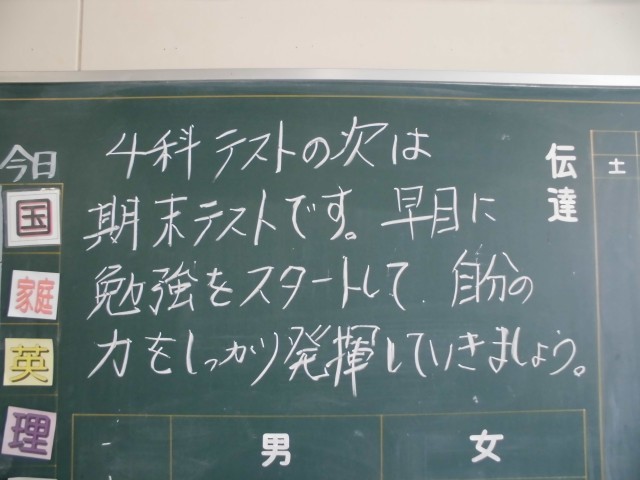 伝達
4科テストの次は
期末テストです。早目に
勉強をスタートして、自分の
力をしっかり発揮していきましょう。
今日
国
家庭
英
理
土
男
女